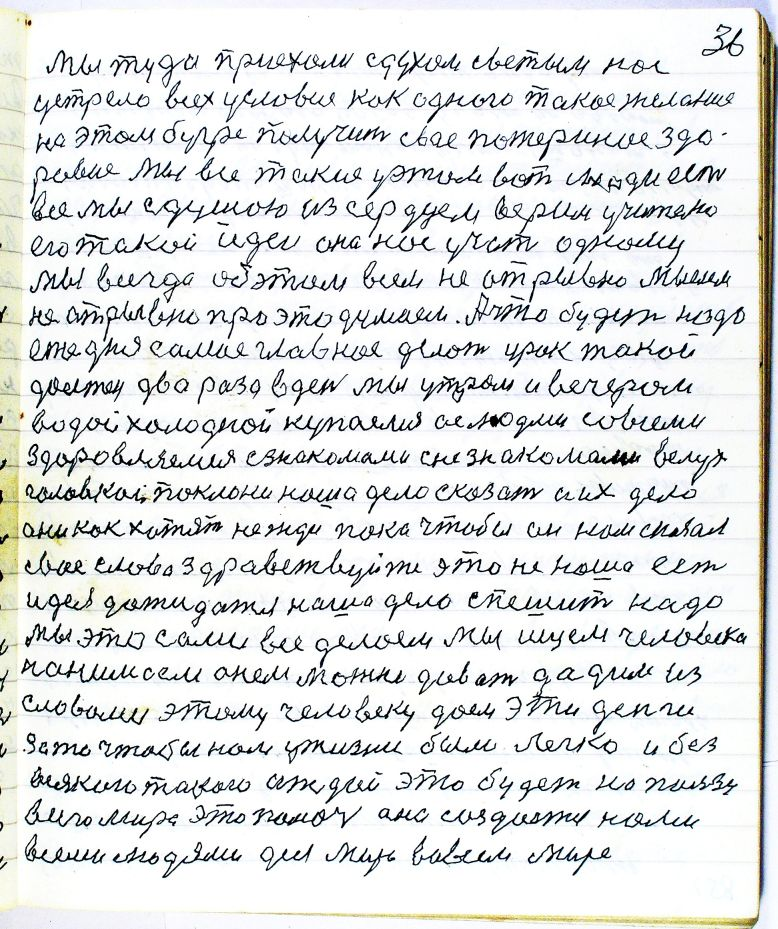 36
мы туда приехали сдухом светым нос
устрело всех условие как одного такое желание
на этом бугре получит свое потериное здо-
ровие мы все такие уэтом вот люди ест
все мы сдушою из сердцем верим учителю
его такой идеи она нос учит одному
мы всегда об этом всем не отрывно мыслем
не отрывно про это думаем. Ачто будет надо
сегодня самое главное делат урок такой
два раза вден мы утром и вечером
водой холодной купаемся слюдми совсеми
здоровляемся сзнакомами снезнакомами велух
головкой, поклони наша дело сказат аих дело
они как хатят нежди пока чтобы он нам сказал
свое слово здравствуйти это не наша ест
идея дожидатся наша дело спешит надо
мы это сами все делоем мы ищем человека
панимаем онем можна доват дадим из
словами этому человеку даем эти денги
зато чтобы нам ужизни были легко и без
всякого такого это будет на ползу
всего мира это помоч она создается нами
всеми людями для мира вовсем мире